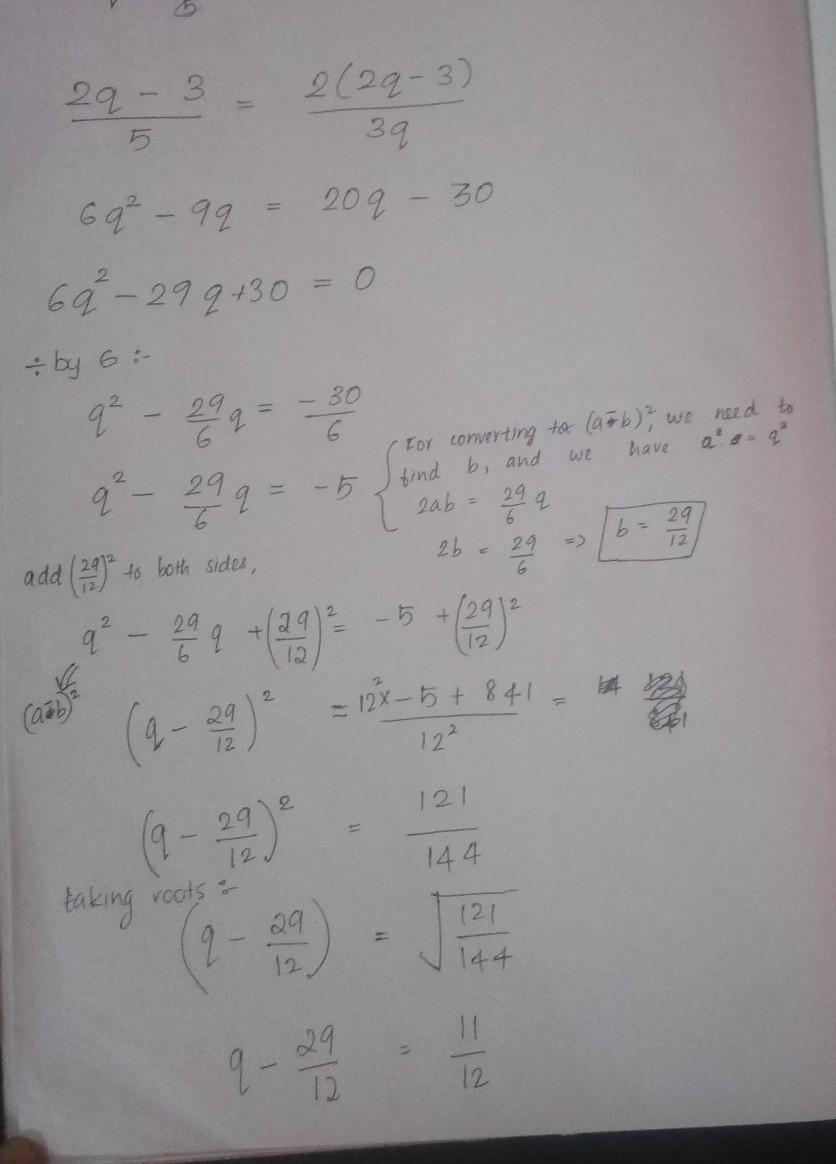 5
2q - 3 / 5 = 2(2q-3) / 3q
6q² - 9q = 20q - 30
6q² - 29q + 30 = 0
÷ by 6 :-
q² - 29/6 q = -30/6
q² - 29/6 q = -5
{ For converting to (a-b)², we need to
find b, and we have a² = q²
2ab = 29/6 q
2b = 29/6 => b = 29/12
add (29/12)² to both sides,
q² - 29/6 q + (29/12)² = -5 + (29/12)²
(a-b)² (q - 29/12)² = 12² x -5 + 841 / 12² =
(q - 29/12)² = 121/144
taking roots :-
(q - 29/12) = √121/144
q - 29/12 = 11/12